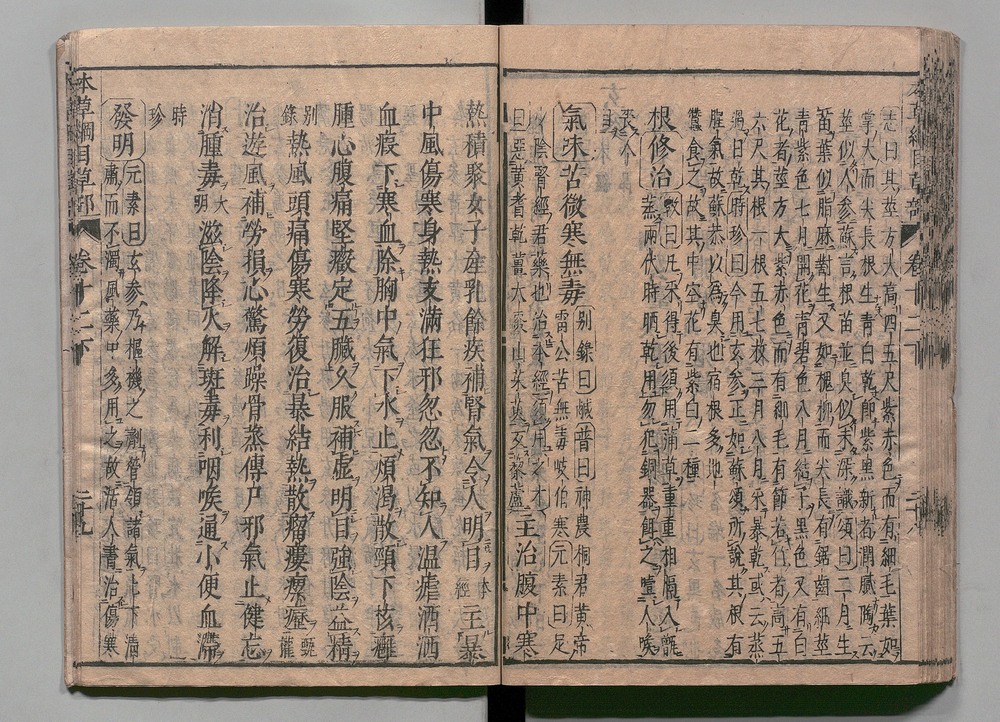 志曰其莖方大高四五尺紫赤色而有細毛葉如
掌大而尖長根生青白乾即紫黑新者潤膩陶云
莖似人參蘇言根苗並臭似未深識頌曰二月生
苗葉似脂麻對生又如槐柳而尖長有鋸齒細莖
青紫色七月開花青碧色八月結子黑色又有白
花者莖方大紫赤色而有細毛有節若竹者高五
六尺其根一根五七枚三月八月采暴乾或云蒸
過日乾時珍曰今用玄參正如蘇頌所說其根有
腥氣故蘇恭以為臭也宿根多地
蠶食之故其中空花有紫白二種
根修治斅曰凡采得後須用蒲草重重相隔入甑
蒸兩伏時晒乾用勿犯銅器餌之噎人喉
喪人目
氣味苦微寒無毒別錄曰鹹普曰神農桐君黃帝
雷公苦無毒岐伯寒元素曰足
少陰腎經君藥也治本經須用之才
曰惡黃耆乾薑大棗山茱萸反藜蘆主治腹中寒
熱積聚女子產乳餘疾補腎氣令人明目本經主暴
中風傷寒身熱支滿狂邪忽忽不知人溫瘧洒洒
血瘕下寒血除胸中氣下水止煩渴散頸下核癰
腫心腹痛堅癥定五臟久服補虛明目強陰益精
別錄熱風頭痛傷寒勞復治暴結熱散瘤瘻瘰癧甄權
治遊風補勞損心驚煩躁骨蒸傳尸邪氣止健忘
消腫毒大明滋陰降火解斑毒利咽喉通小便血滯
時珍
發明元素曰玄參乃樞機之劑管領諸氣上下清
肅而不濁風藥中多用之故活人書治傷寒
本草綱目草部 卷十二下 二十九